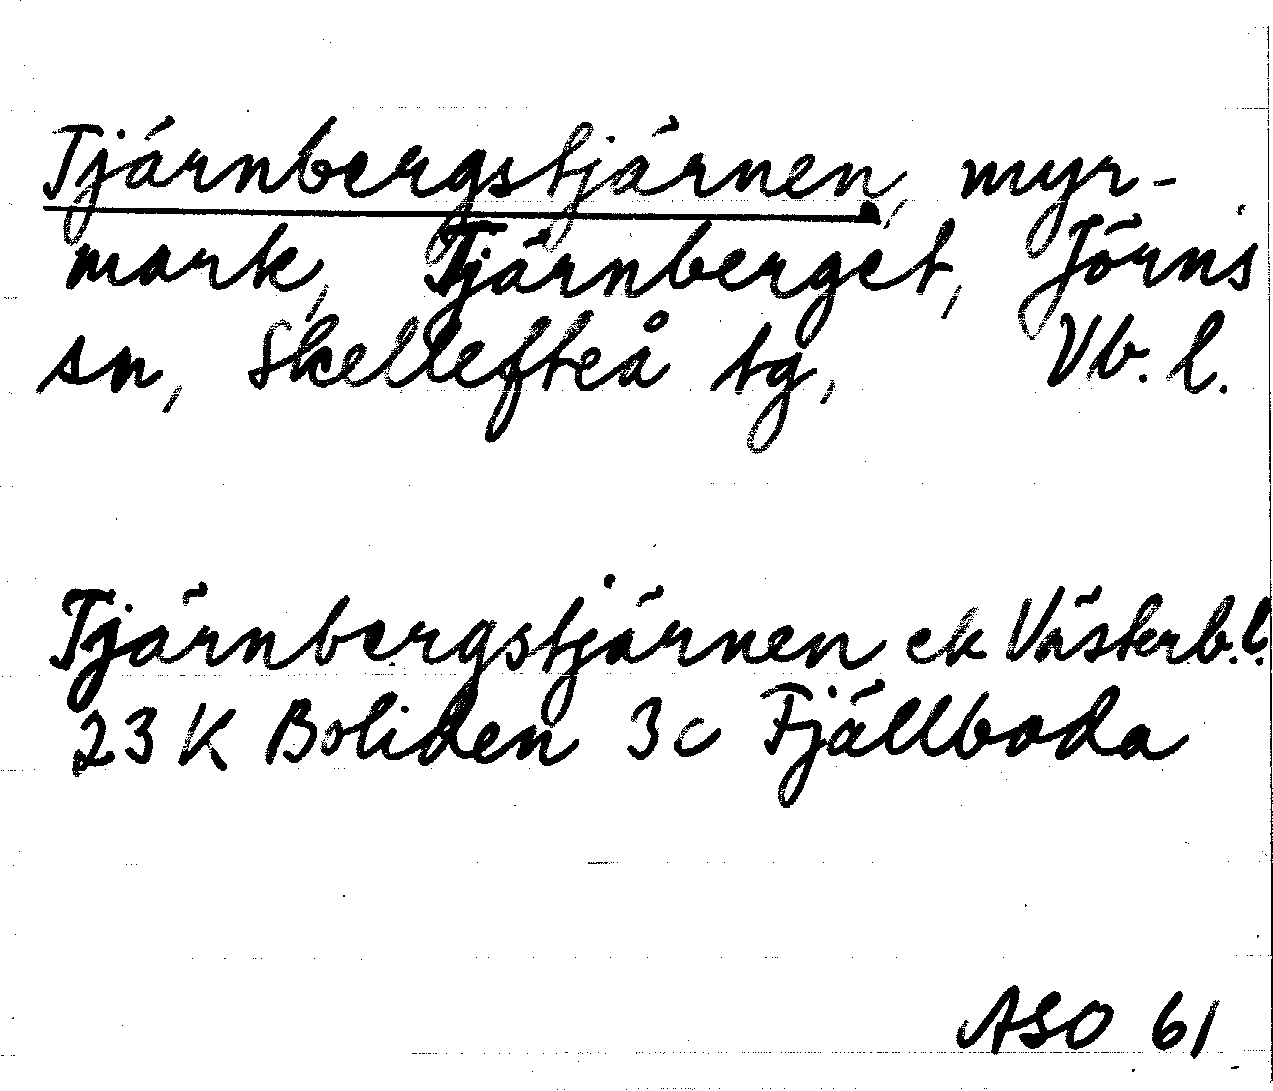 Tjärnbergstjärnen, myr-
mark, Tjärnberget, Jörns
sn, Skellefteå tg, Vb. l.
Tjärnbergstjärnen ek Västerb. l.
23 K Boliden 3c Fjällboda
ASO 61